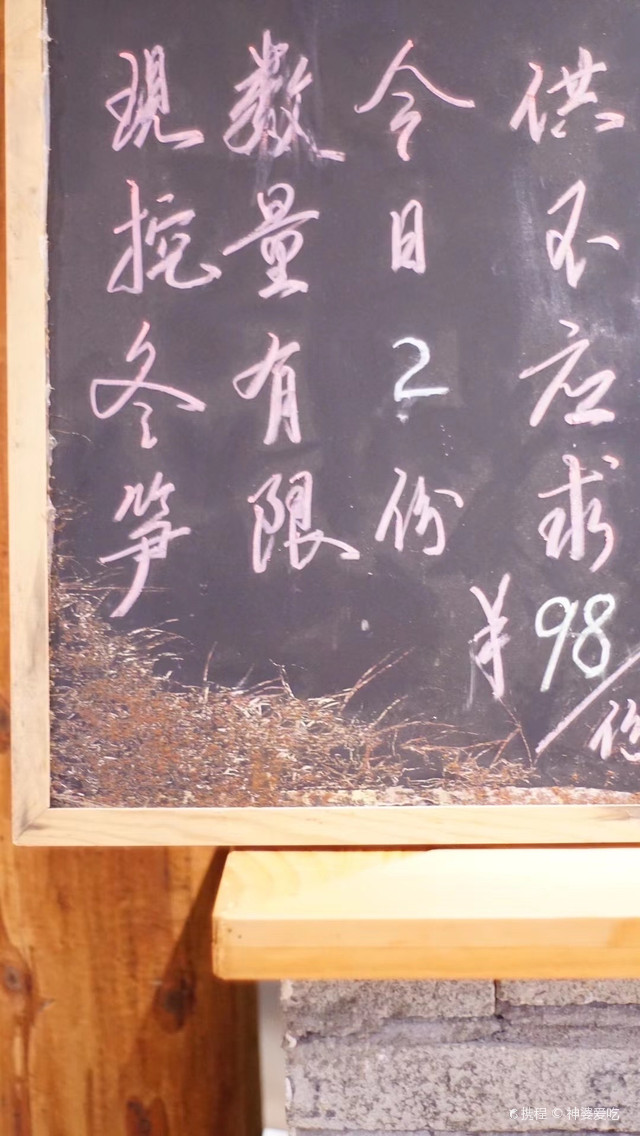 現挖冬笋
数量有限
今日2份
供不应求
¥98/份
携程 © 神婆爱吃